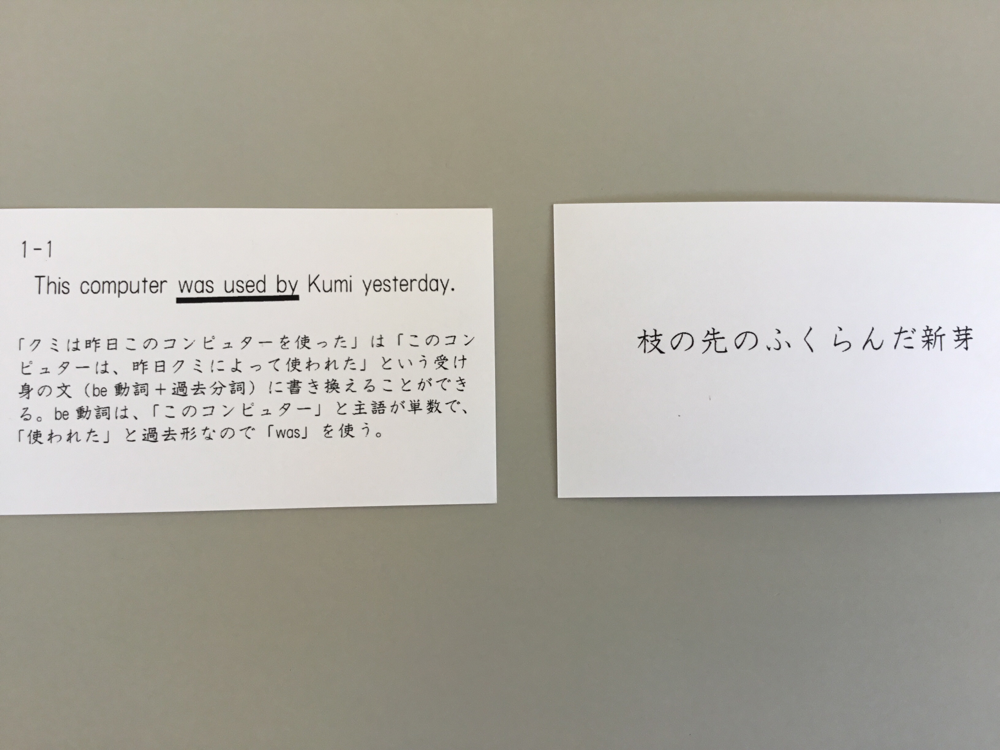 1-1
This computer was used by Kumi yesterday.
「クミは昨日このコンピュターを使った」は「このコン
ピュターは、昨日クミによって使われた」という受け
身の文（be 動詞＋過去分詞）に書き換えることができ
る。be 動詞は、「このコンピュター」と主語が単数で、
「使われた」と過去形なので「was」を使う。
枝の先のふくらんだ新芽